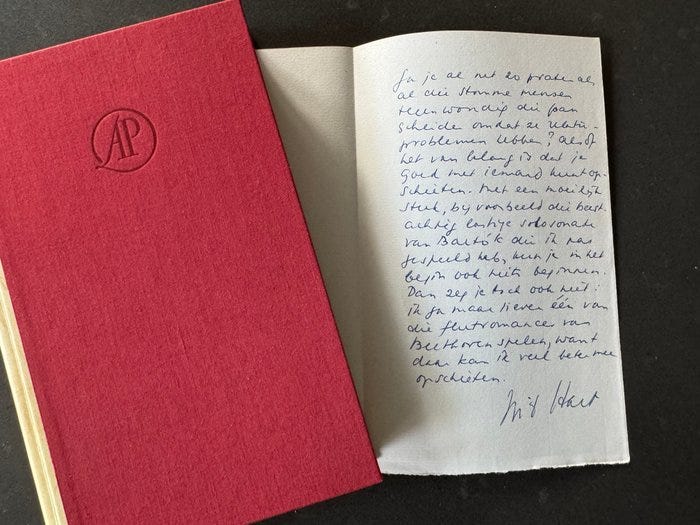 AP
Ga je al net zo praten als
al die stomme mensen
tegenwoordig die gaan
scheiden omdat ze relatie-
problemen hebben? Alsof
het van belang is dat je
goed met iemand kunt op-
schieten. Met een moeilijk
stuk, bij voorbeeld die beest-
achtig lastige solosonate
van Bartók die ik pas
gespeeld heb, kun je in het
begin ook niets beginnen.
Dan zeg je toch ook niet:
ik ga maar liever één van
die flutromances van
Beethoven spelen, want
daar kan ik veel beter mee
opschieten.
Hart